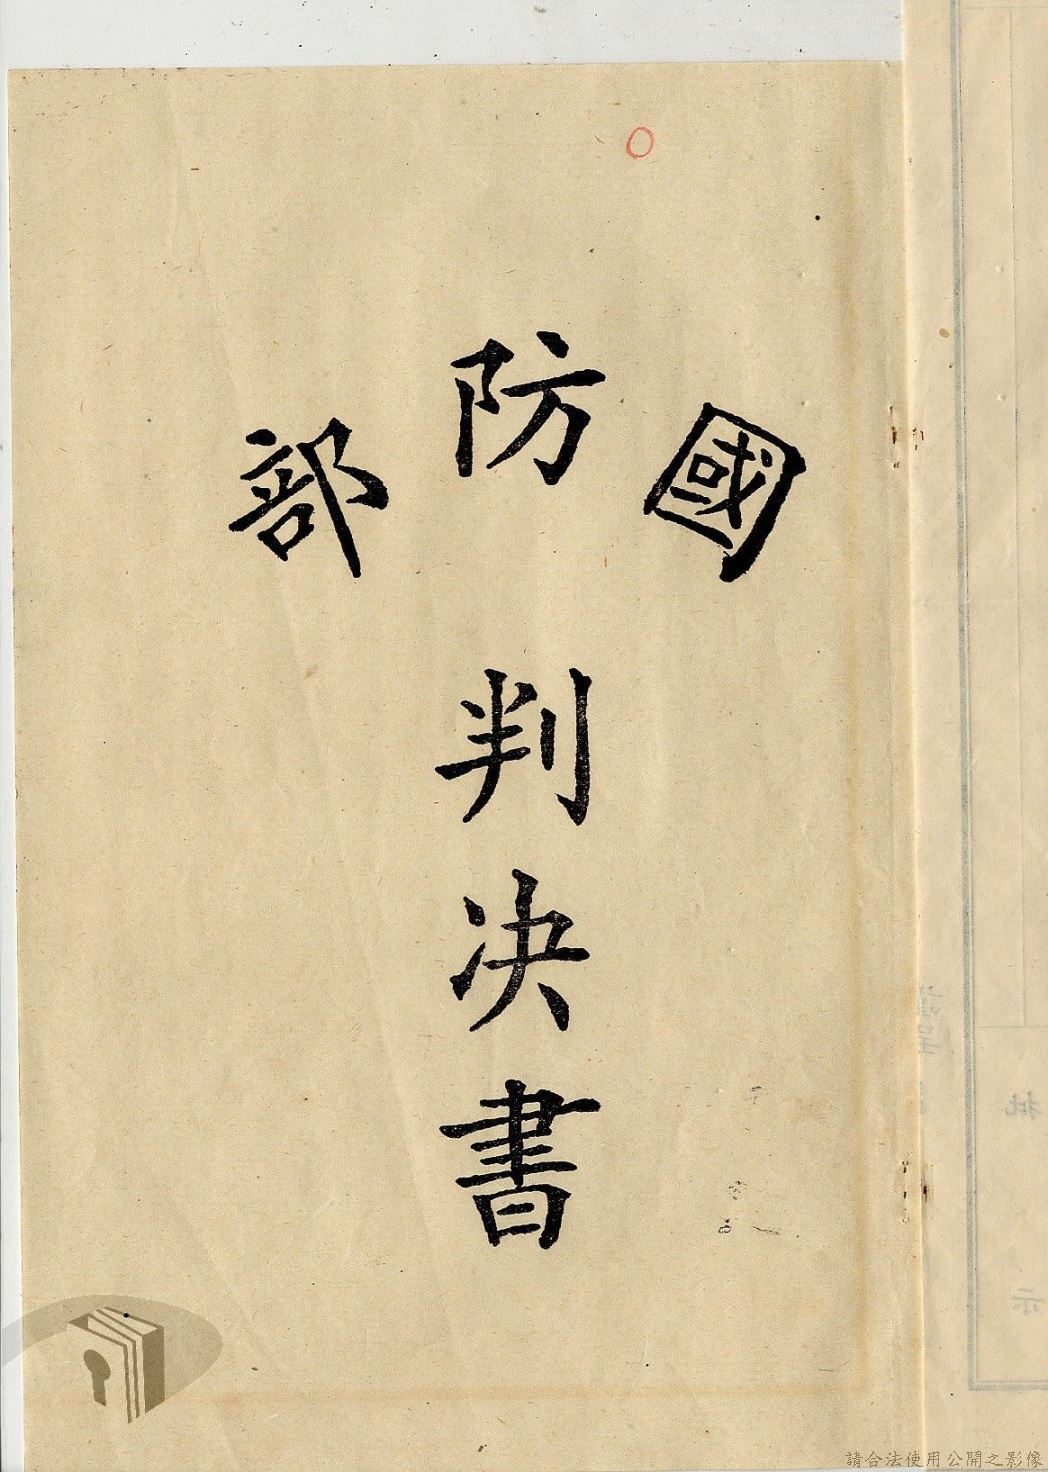 國防部
判決書
批示
請合法使用公開之影像